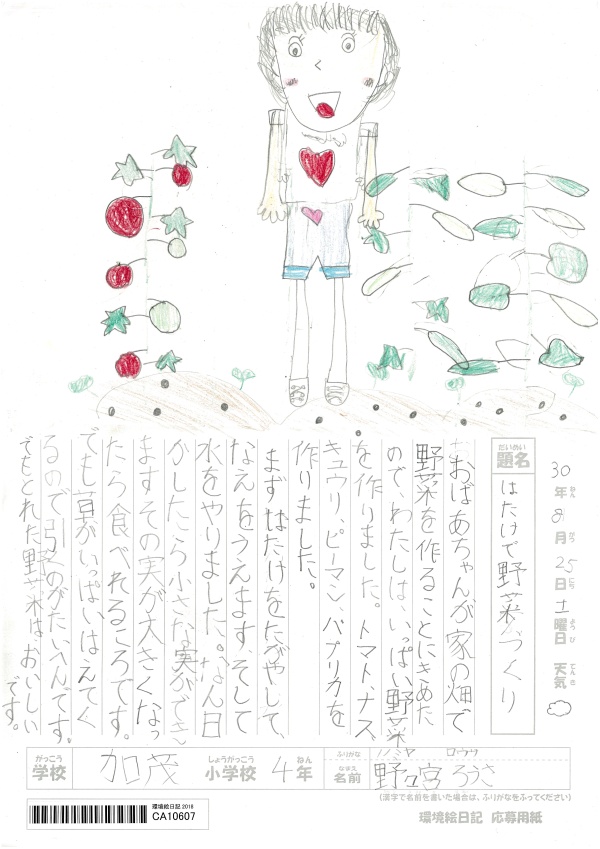 30年8月25日土曜日 天気
ねん がつ にち ようび てんき
だいめい
題名 はたけで野菜づくり
おばあちゃんが家の畑で
野菜を作ることにきめた
ので、わたしは、いっぱい野菜
を作りました。トマト、ナス、
キュウリ、ピーマン、パプリカを
作りました。
まずはたけをたがやして、
なえをうえます。そして
水をやりました。なん日
かしたら小さな実ができ
ますその実が大きくなっ
たら食べれるころです。
でも草がいっぱいはえてく
るので引くのがたいへんです。
でもとれた野菜はおいしい
です。
がっこう しょうがっこう ねん ふりがな
学校 加茂 小学校 4年 なまえ 名前 野々宮
(漢字で名前を書いた場合は、ふりがなをふってください)
環境絵日記 2018
CA10607
環境絵日記 応募用紙